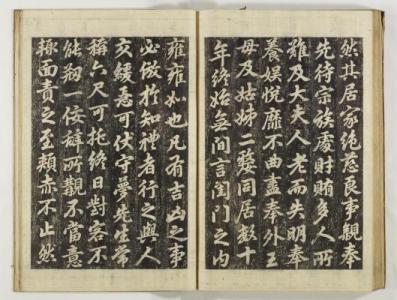 然其居家純慈良事親奉
先待宗族處財賄多人所
難及大夫人老而失明奉
養娛悅靡不曲盡奉外王
母及姑姊二嫠同居彭十
年終始無間言閨門之内
雍雍如也凡有吉凶之事
必倣於知禮者行之與人
交緩急可伏守夢先生嘗
稱六尺可托終日對客不
能翔一佞辭所觀不當意
極面責之至頬赤不止然